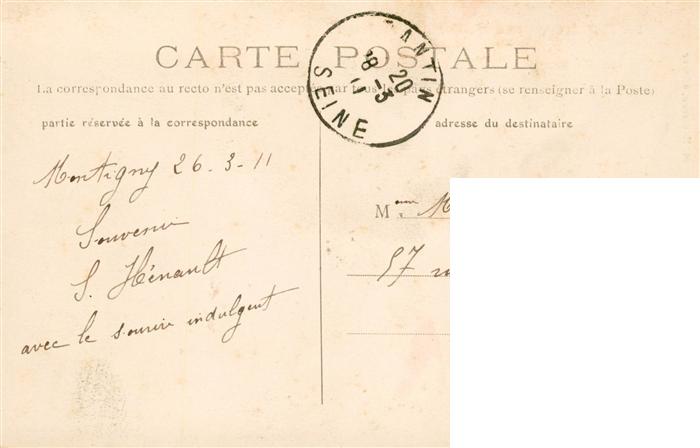 CARTE POSTALE
La correspondance au recto n'est pas acceptée par tous les pays étrangers (se renseigner à la Poste)
partie réservée à la correspondance
adresse du destinataire
PANTIN
20
18-3
11
SEINE
Montigny 26-3-11
Souvenir
S. Hénault
avec le sourire indulgent
Mme M
57